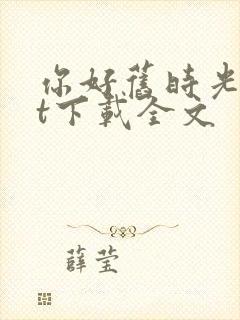 你好舊時光
t下載全文
薛莹